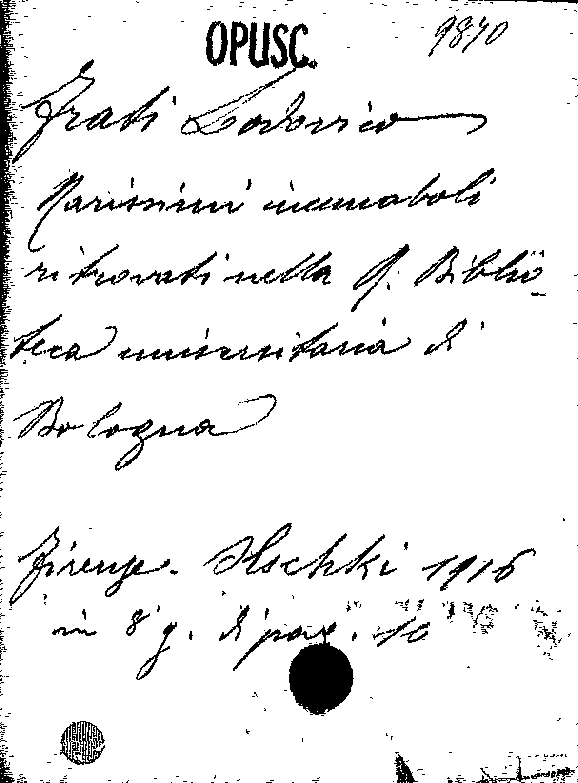 OPUSC. 9870
Frati Lodovico
Rarissimi incunaboli
ritrovati nella R. Biblio-
teca universitaria di
Bologna
Firenze. Olschki 1916
in 8° g. di pag. 10